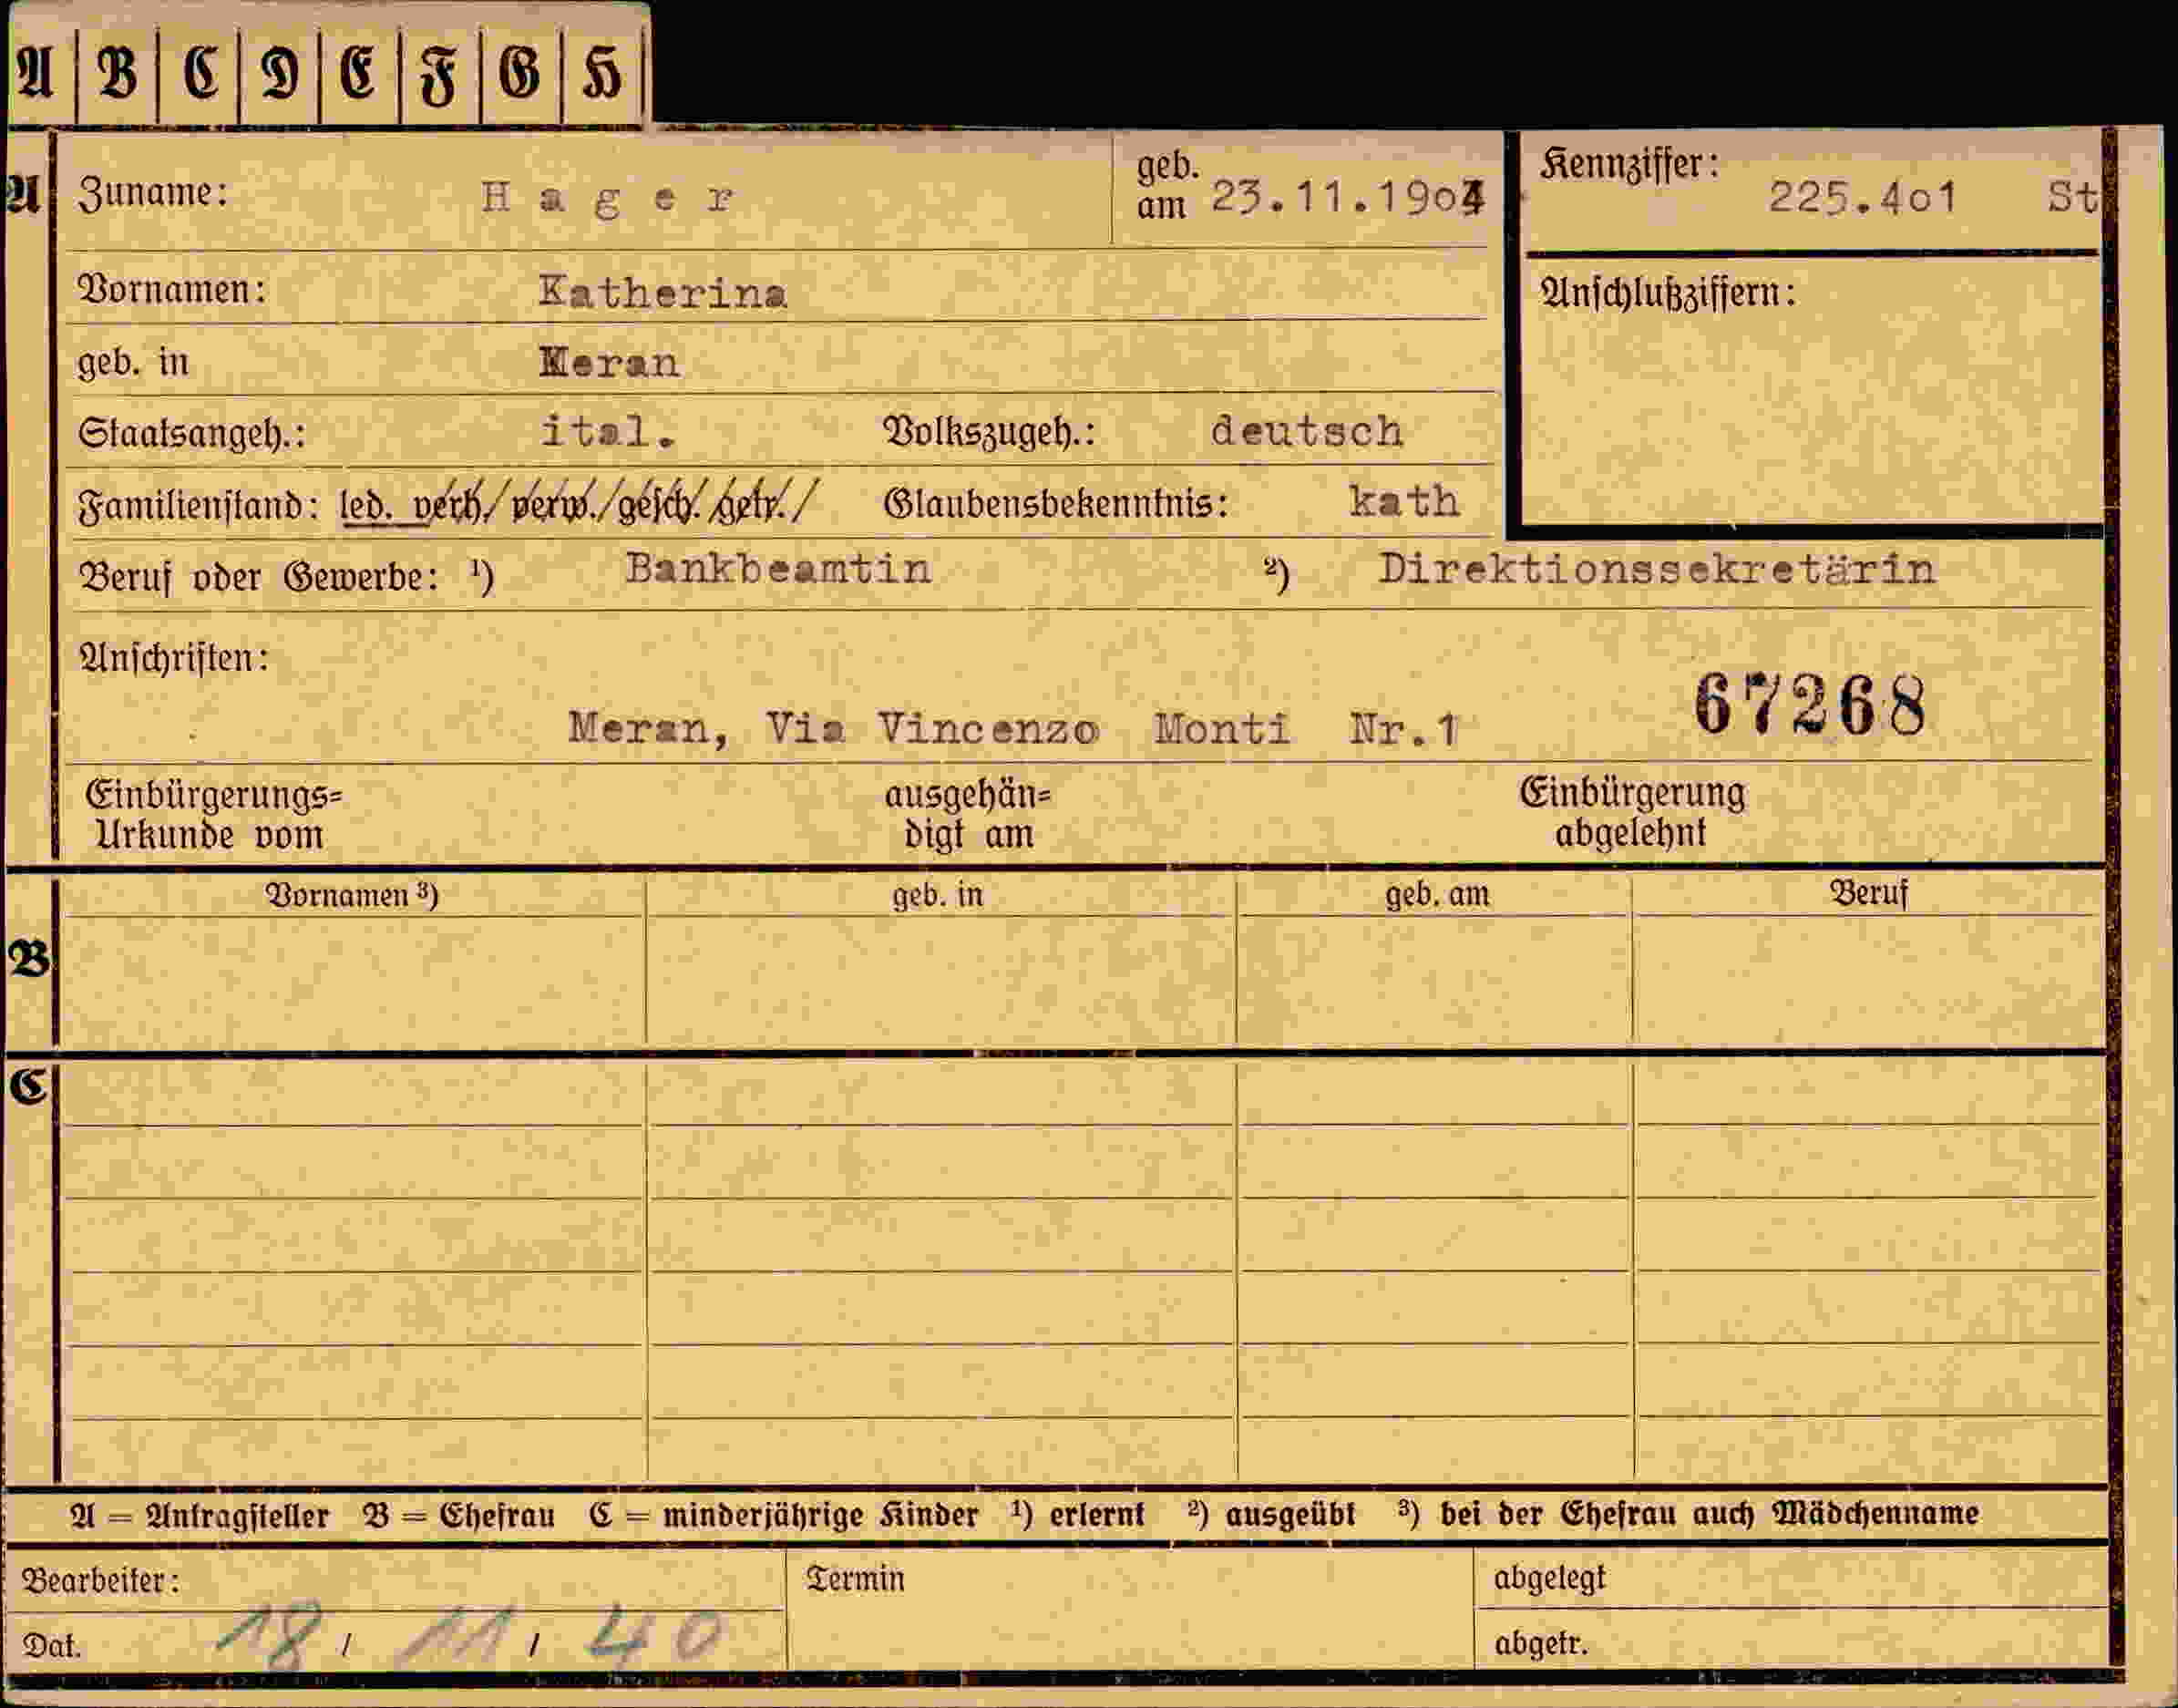 A B C D E F G H
A Zuname: Hager geb. am 23.11.1904 Kennziffer: 225.4o1 St
Vornamen: Katherina Anschlußziffern:
geb. in Meran
Staatsangeh.: ital. Volkszugeh.: deutsch
Familienstand: led. verh/verw./gesch./getr./ Glaubensbekenntnis: kath
Beruf oder Gewerbe: ¹) Bankbeamtin ²) Direktionssekretärin
Anschriften:
67268
Meran, Via Vincenzo Monti Nr.1
Einbürgerungs= ausgehän= Einbürgerung
Urkunde vom digt am abgelehnt
Vornamen ³) geb. in geb. am Beruf
B
C
A = Antragsteller B = Ehefrau C = minderjährige Kinder ¹) erlernt ²) ausgeübt ³) bei der Ehefrau auch Mädchenname
Bearbeiter: Termin abgelegt
Dat. 18 / 11 / 40 abgetr.